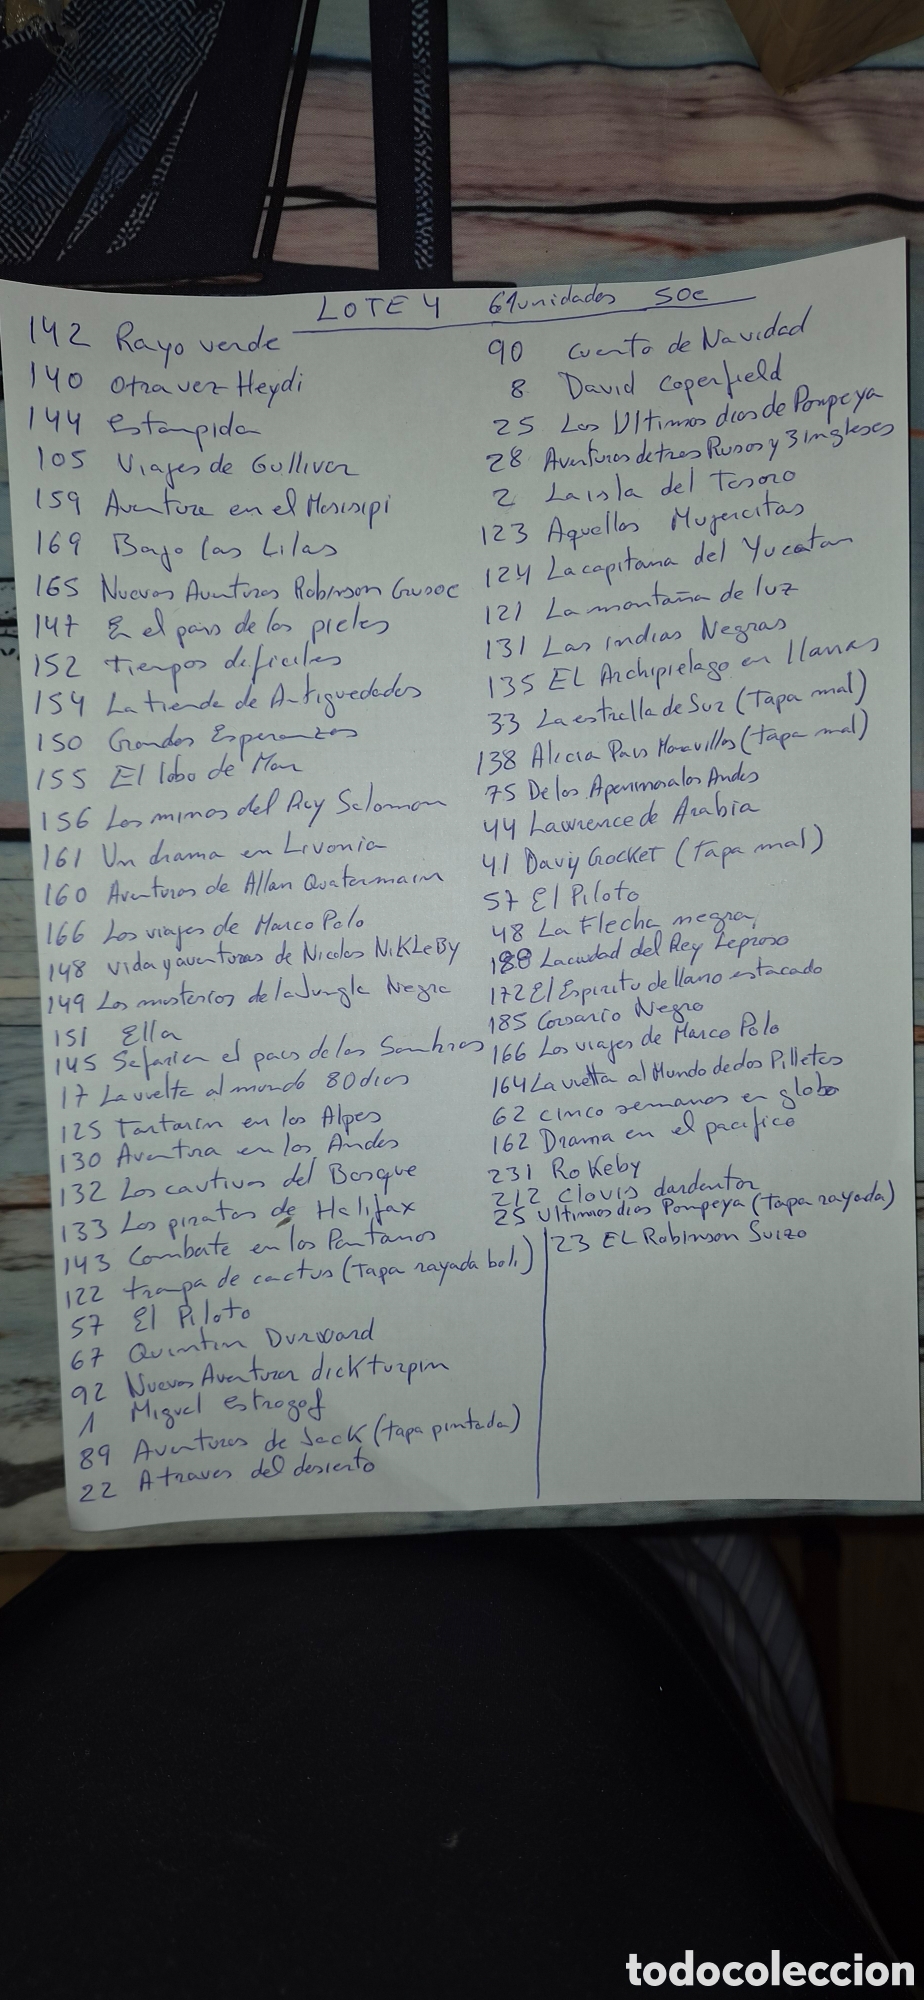 LOTE 4 61unidades 50€
142 Rayo verde
140 otra vez Heydi
144 estampida
105 Viajes de Gulliver
159 Aventura en el Mesisipi
169 Bajo las Lilas
165 Nuevas Aventuras Robinson Crusoe
147 En el pais de las pieles
152 tiempos dificiles
154 La tienda de Antiguedades
150 Grandes Esperanzas
155 El lobo de Mar
156 Las minas del Rey Salomon
161 Un drama en Livonia
160 Aventuras de Allan Quatermain
166 Los viajes de Marco Polo
148 vida y aventuras de Nicolas NiKLeBy
149 Los misterios de la Jungla Negra
151 Ella
145 Safari en el pais de las Sombras
17 La vuelta al mundo 80 dias
125 tartarin en los Alpes
130 Aventura en los Andes
132 Los cautivos del Bosque
133 Los piratas de Halifax
143 Combate en los Pantanos
122 trampa de cactus (tapa rayada boli)
57 El Piloto
67 Quintin Durward
92 Nuevas Aventuras dick turpin
1 Miguel estrogof
89 Aventuras de Jack (tapa pintada)
22 A traves del desierto
90 Cuento de Navidad
8 David Coperfield
25 Los Ultimos dias de Pompeya
28 Aventuras de tres Rusos y 3 ingleses
2 La isla del Tesoro
123 Aquellas Mujercitas
124 La capitana del Yucatan
121 La montaña de luz
131 Las indias Negras
135 EL Archipielago en llamas
33 La estrella de Sur (Tapa mal)
138 Alicia Pais Maravillas (tapa mal)
75 De los Apeninos a los Andes
44 Lawrence de Arabia
41 Daviy Crocket (tapa mal)
57 El Piloto
48 La Flecha negra
188 La ciudad del Rey Leproso
172 El Espiritu del llano estacado
185 Corsario Negro
166 Los viajes de Marco Polo
164 La vuelta al Mundo de dos Pilletes
62 cinco semanas en globo
162 Drama en el pacifico
231 RoKeby
212 clovis dardentor
25 Ultimos dias Pompeya (Tapa rayada)
23 EL Robinson Suizo
todocoleccion